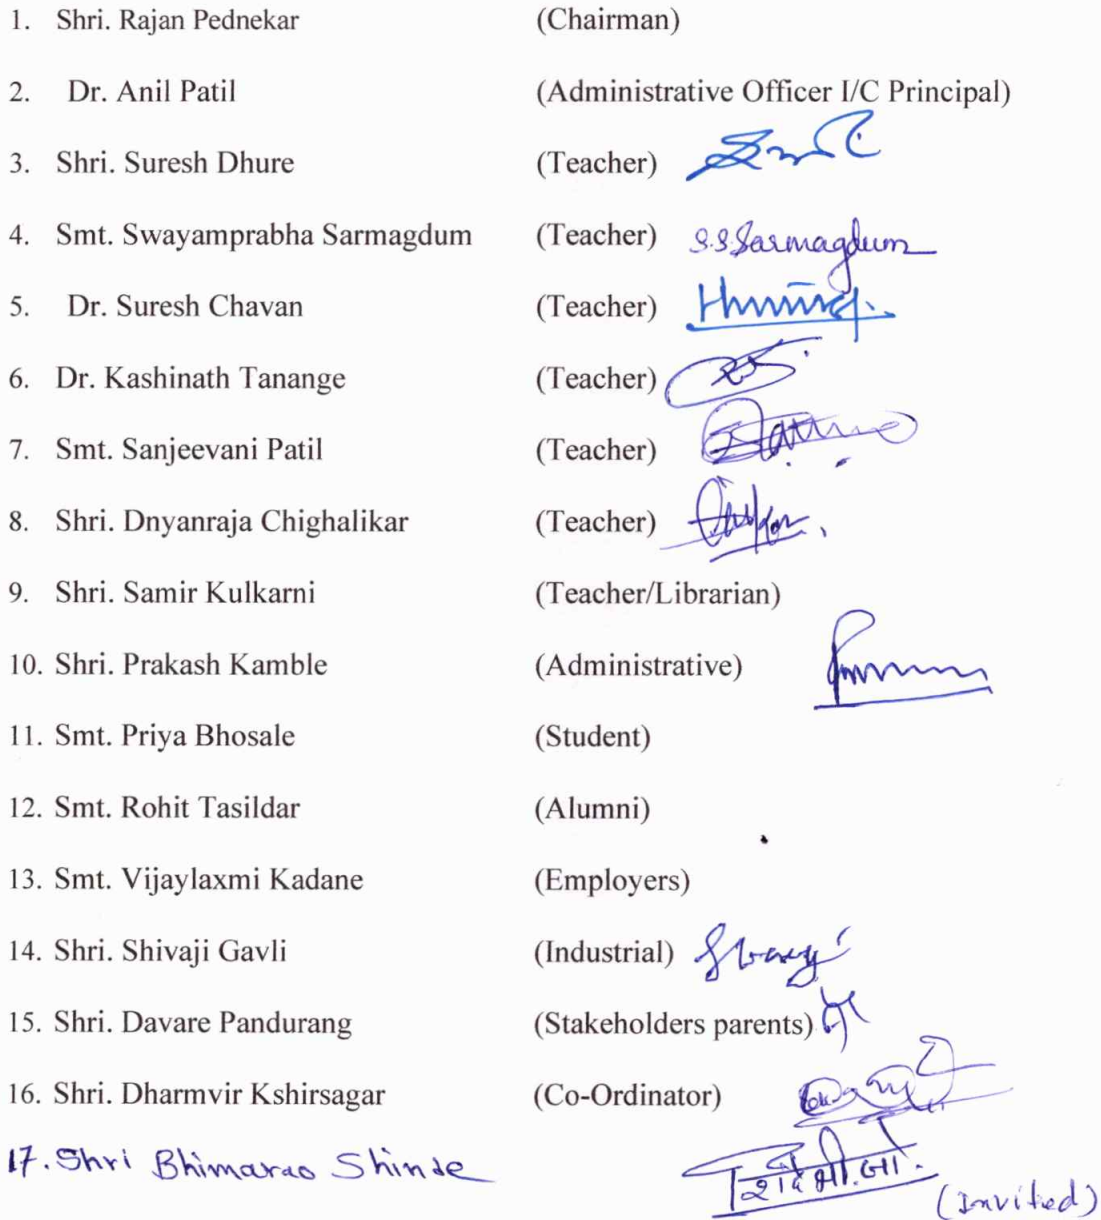 1. Shri. Rajan Pednekar (Chairman)
2. Dr. Anil Patil (Administrative Officer I/C Principal)
3. Shri. Suresh Dhure (Teacher)
4. Smt. Swayamprabha Sarmagdum (Teacher) S.S.Sarmagdum
5. Dr. Suresh Chavan (Teacher)
6. Dr. Kashinath Tanange (Teacher)
7. Smt. Sanjeevani Patil (Teacher)
8. Shri. Dnyanraja Chighalikar (Teacher)
9. Shri. Samir Kulkarni (Teacher/Librarian)
10. Shri. Prakash Kamble (Administrative)
11. Smt. Priya Bhosale (Student)
12. Smt. Rohit Tasildar (Alumni)
13. Smt. Vijaylaxmi Kadane (Employers)
14. Shri. Shivaji Gavli (Industrial)
15. Shri. Davare Pandurang (Stakeholders parents)
16. Shri. Dharmvir Kshirsagar (Co-Ordinator)
17. Shri Bhimarao Shinde (Invited)